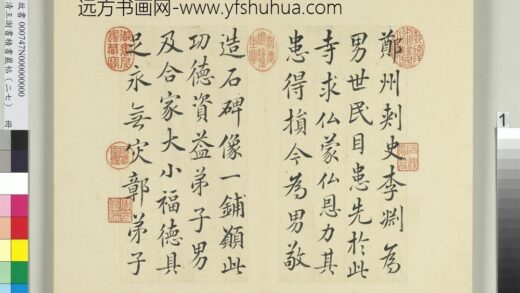 远方书画网-www.yfshuhua.com
鄭州刾史李渊為
男世民目患先於此
寺求仏蒙仏恩力其
患得損今為男敬
造石碑像一鋪願此
功德資益弟子男
及合家大小福德具
足永無灾鄣弟子
故書000747N000000000
清王澍書積書巖帖(二七) 冊
1